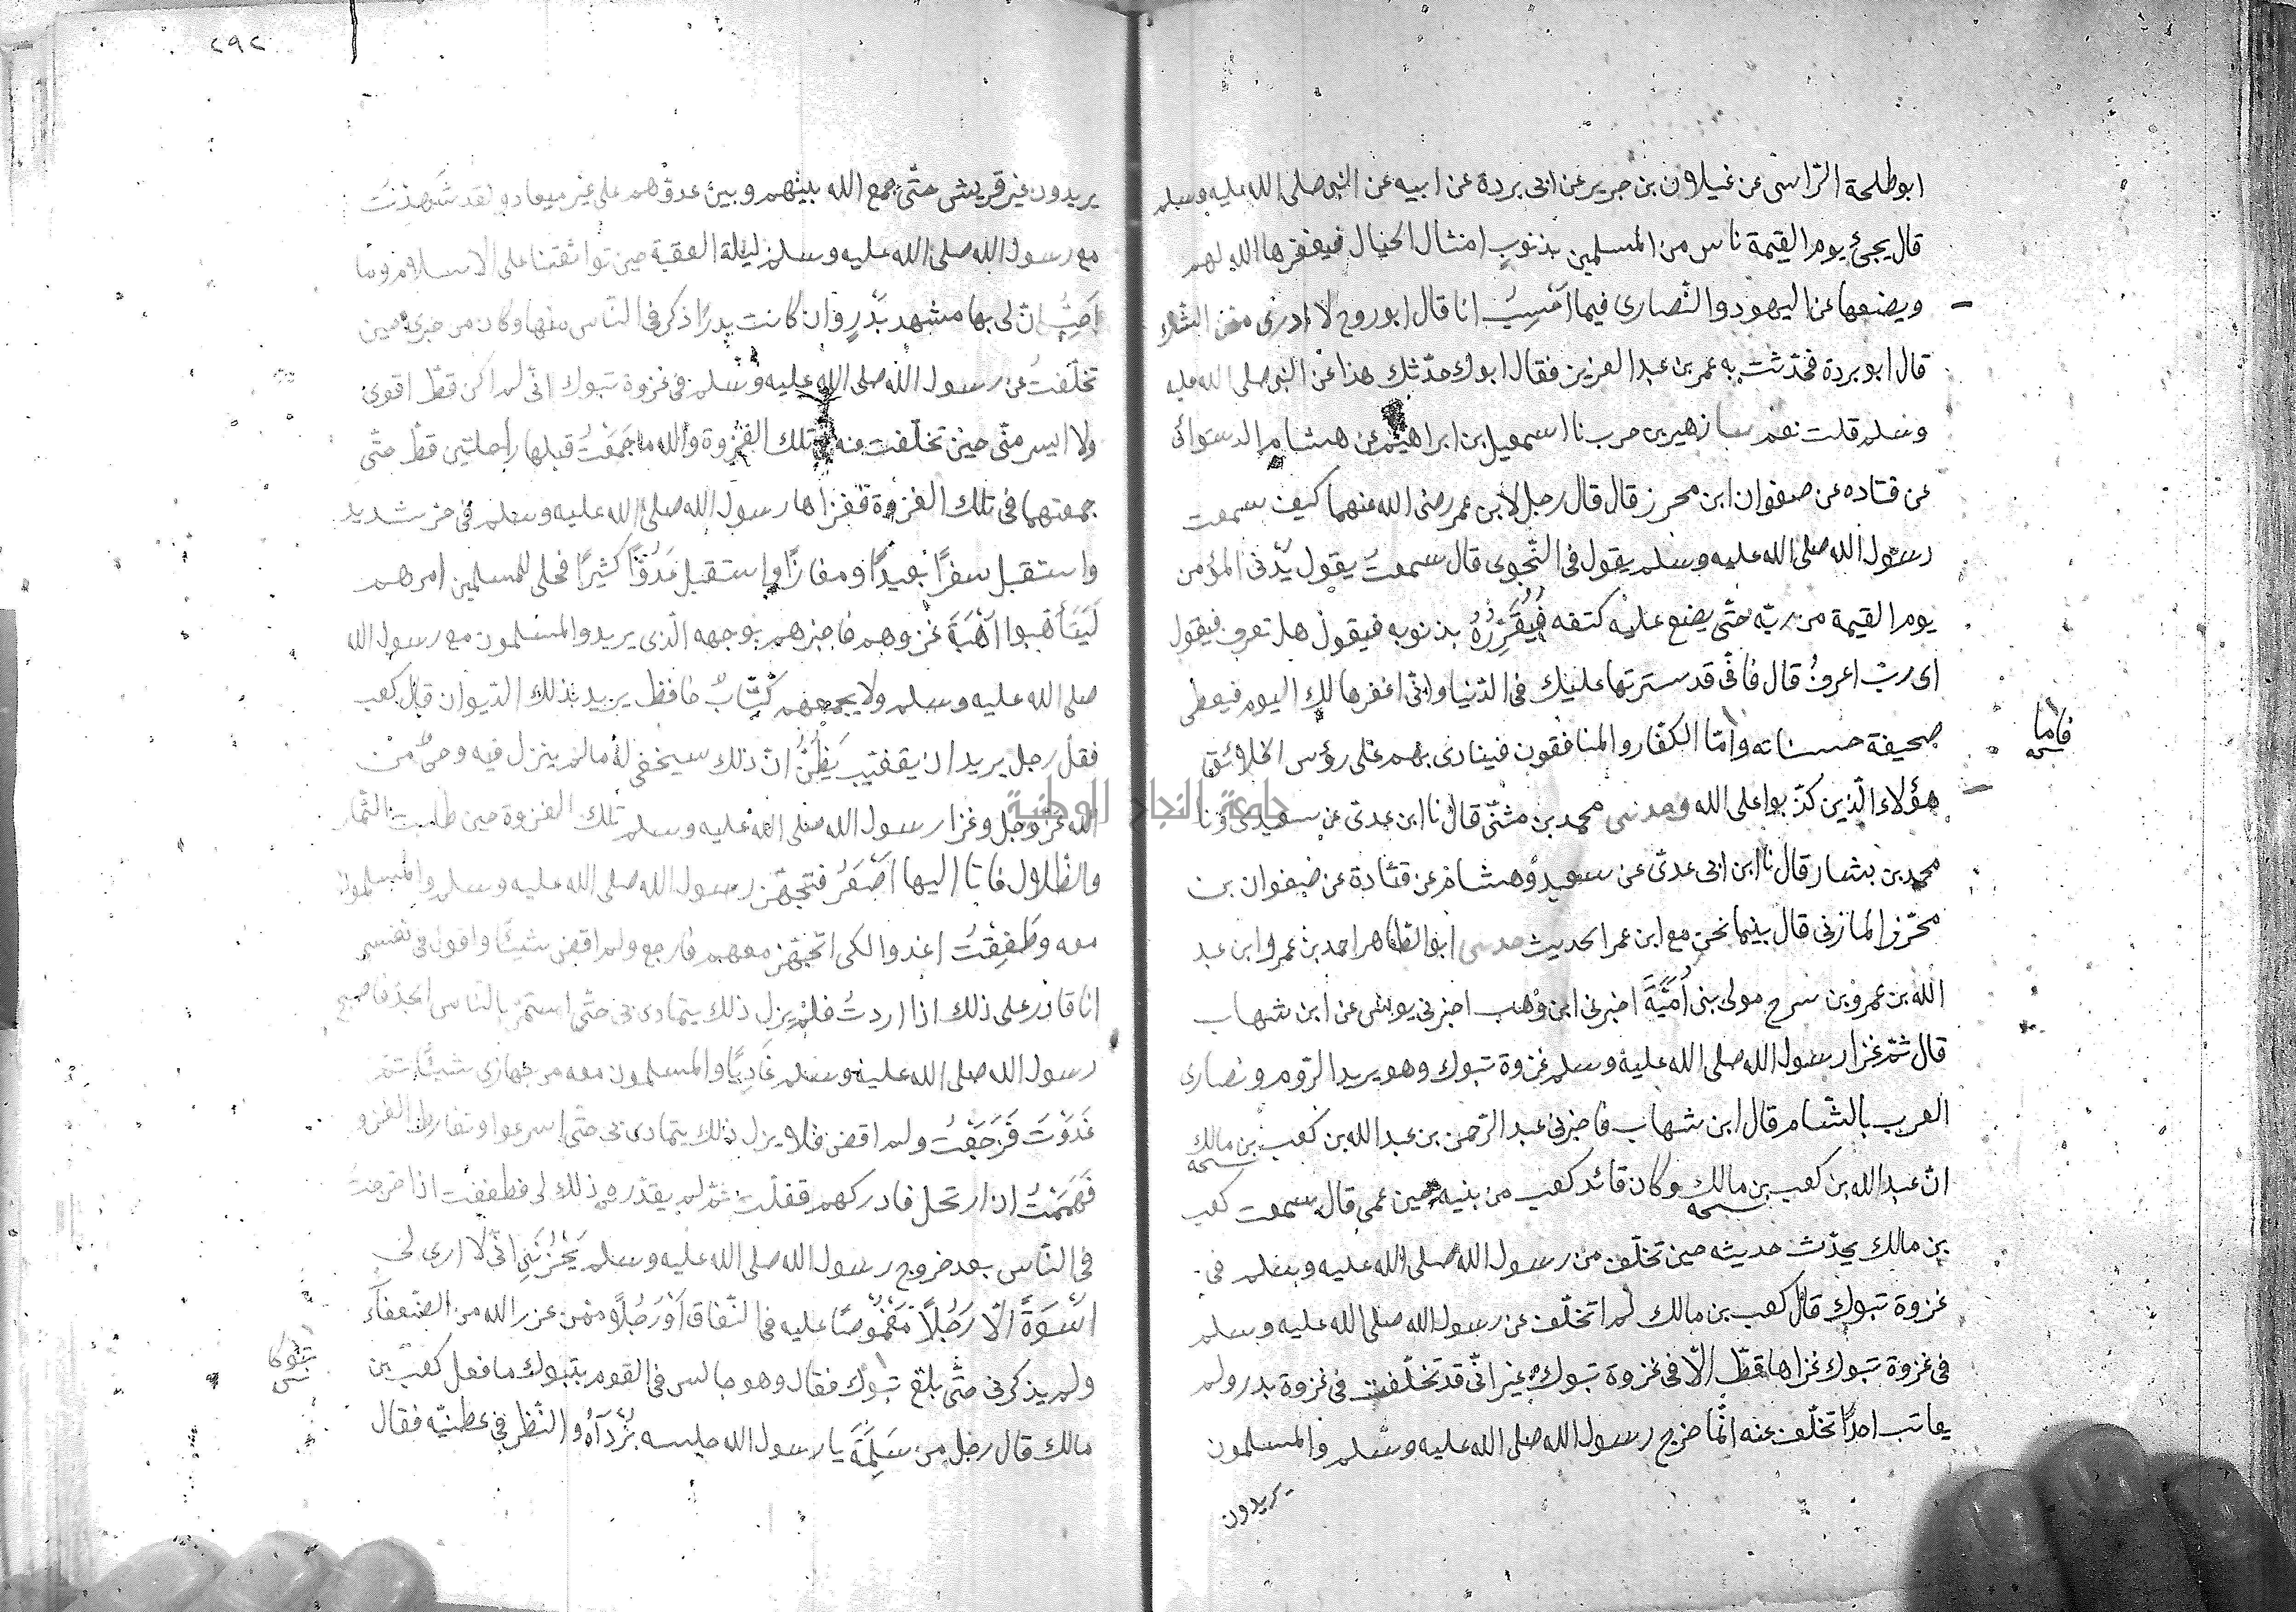 ابو طلحة الرّاسى عن غيلان بن جرير عن ابى بردة عن ابيه عن النبى صلى الله عليه وسلم
قال يجئ يوم القيمة ناس من المسلمين بذنوبٍ امثال الجبال فيغفرها الله لهم
ويضعها عن اليهود والنّصارى فيما احْسِبُ انا قال ابو روح لا ادرى ممن الشك
قال ابو بردة فحدّثت به عمر بن عبد العزيز فقال ابوك حدّثك هذا عن النبى صلى الله عليه
وسلم قلت نعم نا زهير بن حرب نا اسمعيل بن ابراهيم عن هشام الدستوائى
عن قتاده عن صفوان ابن محرز قال قال رجل لابن عمر رضى الله عنهما كيف سمعت
رسول الله صلى الله عليه وسلم يقول فى النّجوى قال سمعتُ يقول يُدْنى المؤمن
يوم القيمة من ربّه حتّى يضع عليه كتفه فَيُقَرِّرُهُ بذنوبه فيقول هل تعرف فيقول
اى ربّ اعرفُ قال فانّى قد سترتها عليك فى الدّنيا وانّى اغفرها لك اليوم فيعطى
صحيفة حسناته وامّا الكفّار والمنافقون فينادى بهم على رؤس الخلائق
فاما
هؤلاء الّذين كذّبوا على الله وحدثنى محمد بن مثنّى قال نا ابن عدىّ عن سعيد ى ونا
محمد بن بشار قال نا ابن ابى عدىّ عن سعيد وهشام عن قتادة عن صفوان بن
محرّز المازنى قال بينما نحن مع ابن عمر الحديث حدثنى ابو الطّاهر احمد بن عمرو ابن عبد
الله بن عمرو بن سرح مولى بنى اُمَيَّةَ اخبرنى ابن وهب اخبرنى يونس عن ابن شهاب
قال ثمّ غزا رسول الله صلى الله عليه وسلم غزوة تبوك وهو يريد الرّوم ونصارى
العرب بالشّام قال ابن شهاب فاخبرنى عبد الرّحمن بن عبد الله بن كعب بن مالك
انّ عبد الله بن كعب بن مالك وكان قائد كعب من بنيه حين عمى قال سمعت كعب
بن مالك يحدّث حديثه حين تخلّف من رسول الله صلى الله عليه وسلم فى
غزوة تبوك قال كعب بن مالك لم اتخلّف عن رسول الله صلى الله عليه وسلم
فى غزوة تبوك غزاها قطّ الّا فى غزوة تبوك غير انّى قد تخلّفت فى غزوة بدر ولم
يعاتب احدًا تخلّف عنه انّما خرج رسول الله صلى الله عليه وسلم والمسلمون
يريدون
٢٩٢
يريدون عير قريش حتّى جمع الله بينهم وبين عدوّهم على غير ميعاد ولقد شَهِدْتُ
مع رسول الله صلى الله عليه وسلم ليلة العقبة حين تواثقنا على الاسلام وما
اُحِبُّ انّ لى بها مشهد بَدْرٍ وان كانت بدرًا ذكر فى النّاس منها وكان من خبرى حين
تخلّفتُ عن رسول الله صلى الله عليه وسلم فى غزوة تبوك انّى لم اكن قطّ اقوى
ولا ايسر منّى حين تخلّفت عنه تلك الغزوة والله ما جَمَعْتُ قبلها راحلتين قطّ حتّى
جمعتهما فى تلك الغزوة فغزاها رسول الله صلى الله عليه وسلم فى حرّ شديد
واستقبل سفرًا بعيدًا ومفازًا واستقبل عَدُوًّا كثيرًا فجلى للمسلمين امرهم
لِيَتَأهّبوا اُهْبَةَ غزوهم فاخبرهم بوجهه الّذى يريد والمسلمون مع رسول الله
صلى الله عليه وسلم ولا يجمعهم كِتَابٌ حافظ يريد بذلك الدّيوان قال كعب
فقلّ رجل يريد ان يتغيّب يَظُنُّ انّ ذلك سيخفى له ما لم ينزل فيه وحىٌ من
الله عزّ وجل وغزا رسول الله صلى الله عليه وسلم تلك الغزوة حين طابت الثّمار
والظّلال فانا اليها اَصْعَرُ فتجهّز رسول الله صلى الله عليه وسلم والمسلمون
معه وطَفِقْتُ اغدوا لكى اتجهّز معهم فارجع ولم اقض شيئًا واقول فى نفسى
انا قادر على ذلك اذا اردتُ فلم يزل ذلك يتمادى بى حتّى استمرّ بالناس الجدّ فاصبح
رسول الله صلى الله عليه وسلم غاديًا والمسلمون معه من جهازى شيئًا ثم
غَدَوْتَ فَرَجَعْتُ ولم اقض فلا يزل ذلك يتمادى بى حتّى اسرعوا وتفارط الغزو
فَهَمَمْتُ ان ارتحل فادركهم فقلت ثمّ لم يقدّر ذلك لى فطفقت اذا خرجت
فى النّاس بعد خروج رسول الله صلى الله عليه وسلم يَحْزُنُنِى انّى لا ارى لى
اسْوَةً الّا رَجُلًا مَغْمُوصًا عليه فى النّفاق اَوْ رَجُلًا ممّن عزر الله من الضّعفآء
ولم يذكرنى حتّى بلغ تبوك فقال وهو جالس فى القوم بتبوك ما فعل كعب بن
تبوكا
مالك قال رجل من سَلِمَةَ يا رسول الله حبسه بُرْدَاهُ والنّظر فى عطفيه فقال
جامعة النجاح الوطنية